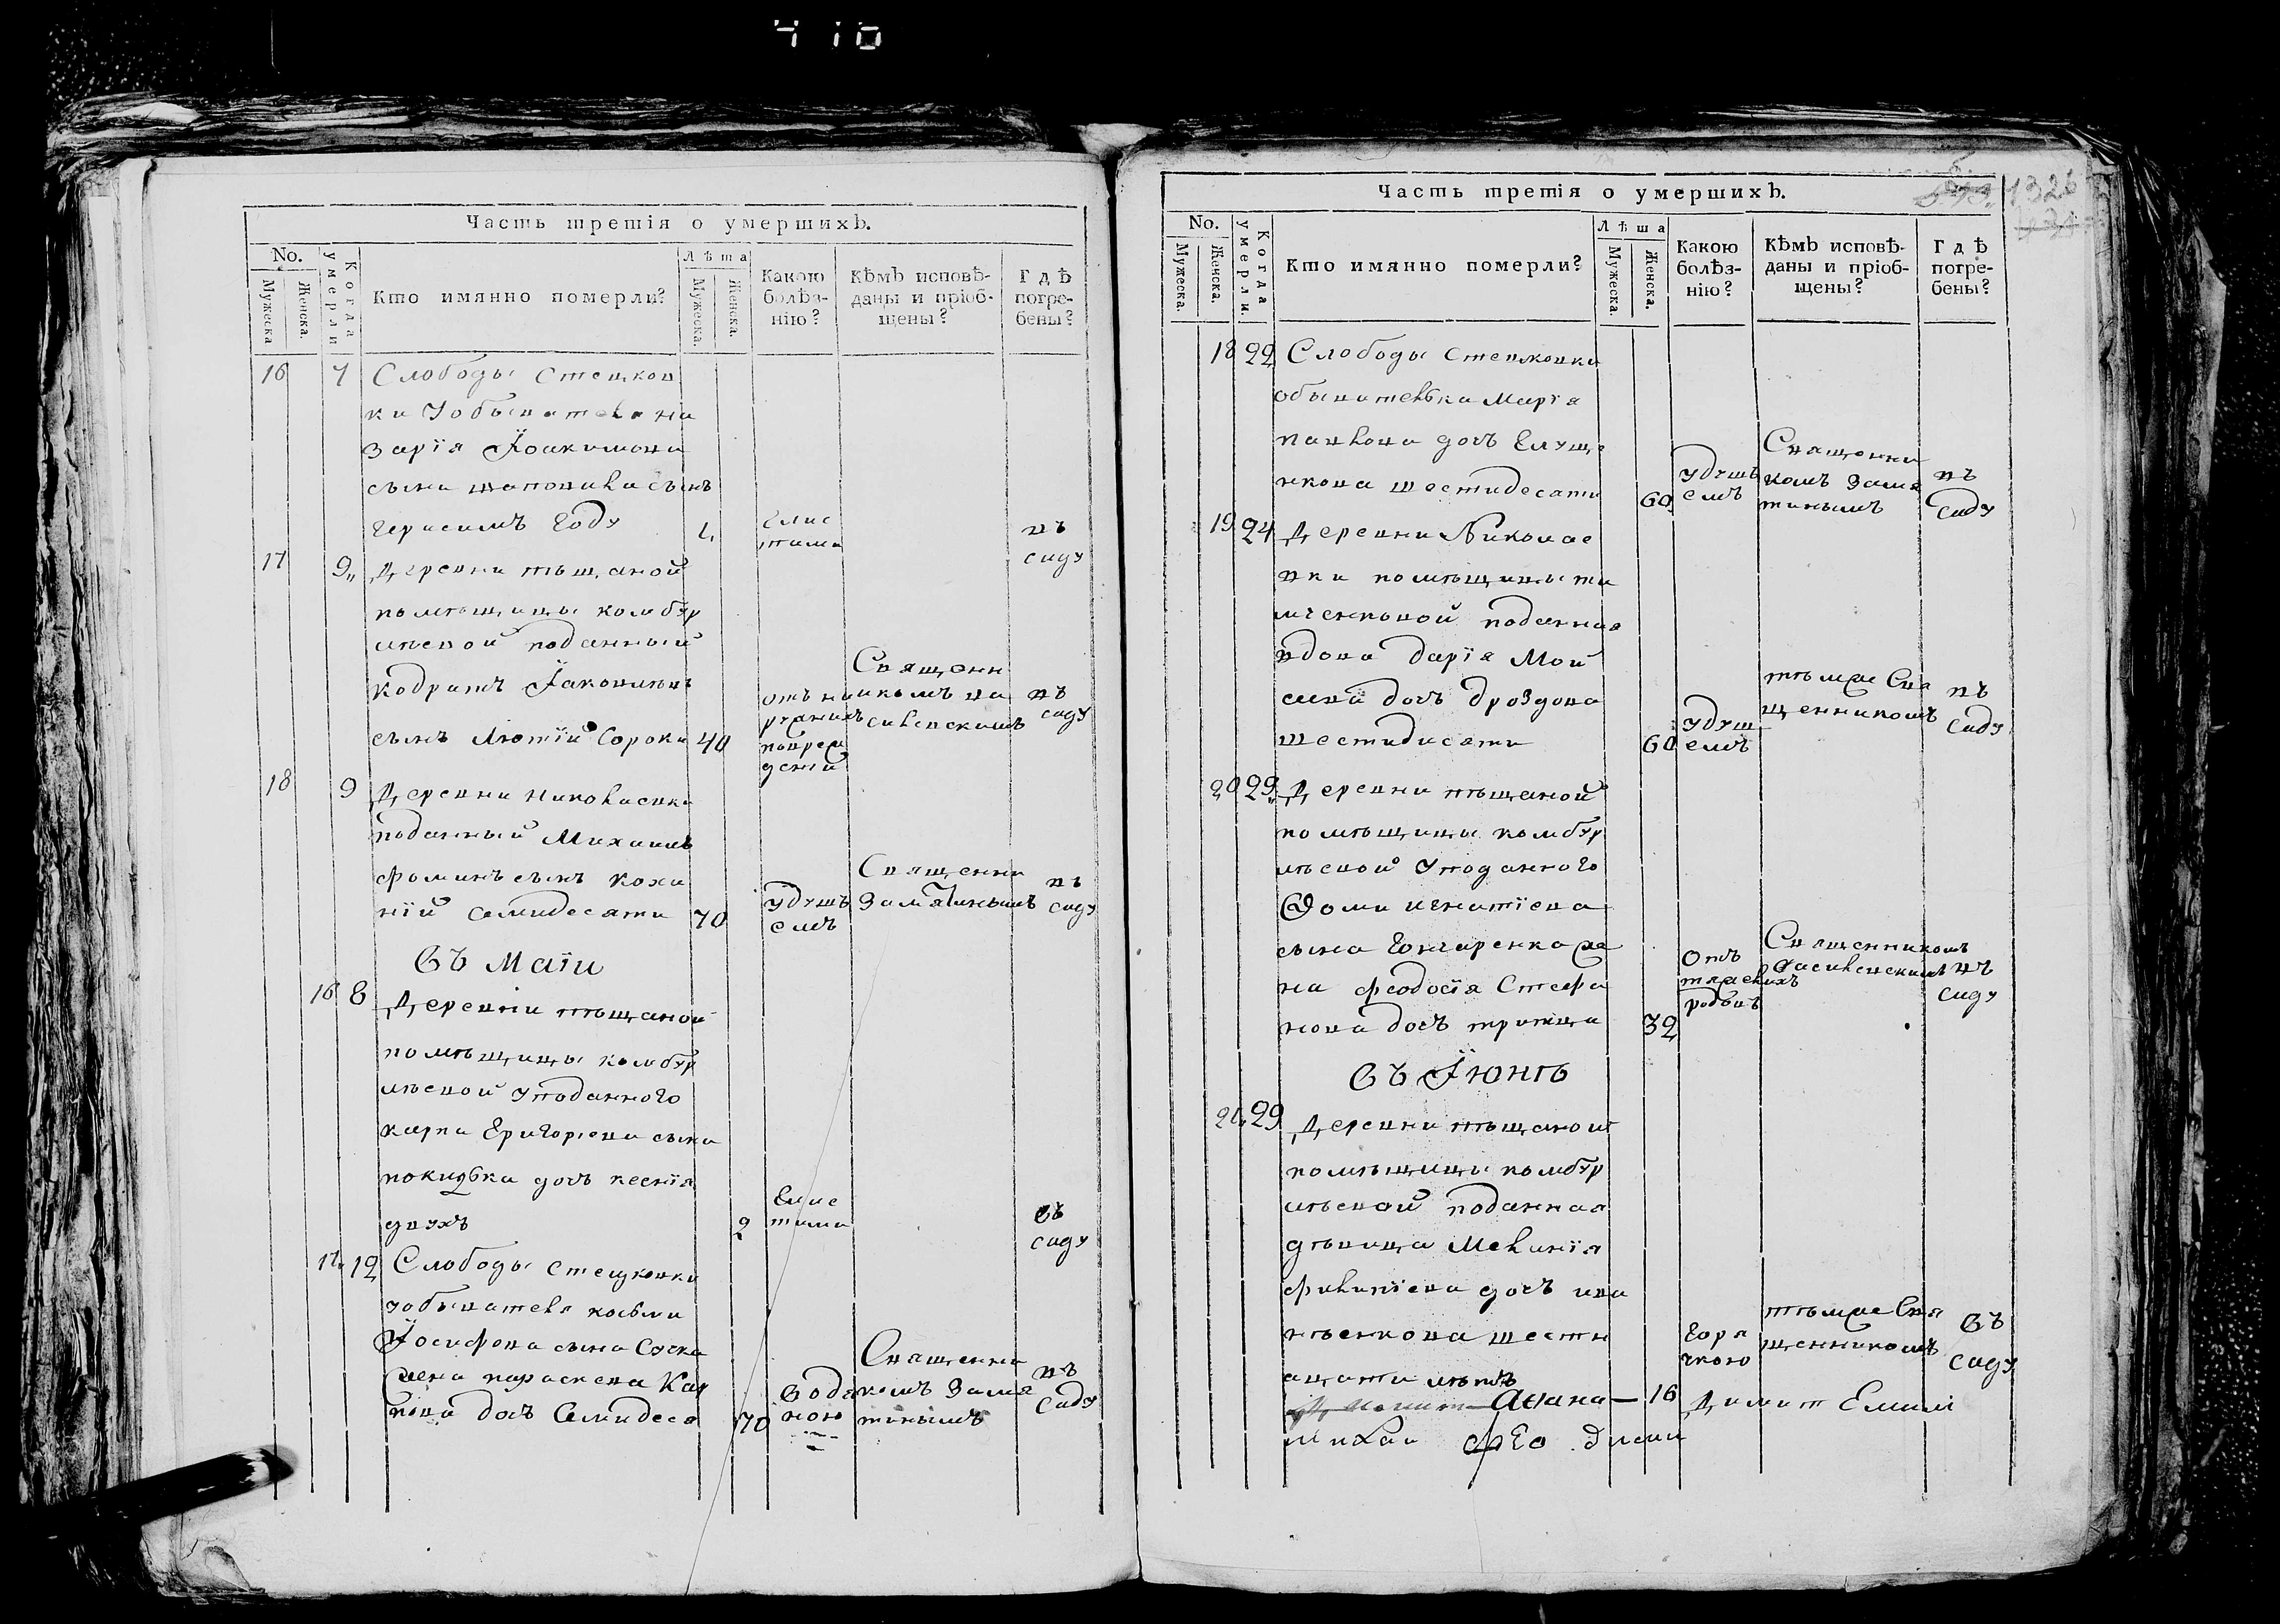 410
Часть третія о умершихъ.
No.
Мужеска
Женска.
Когда умерли
Кто имянно померли?
Лѣта
Мужеска.
Женска.
Какою болѣз-
нію?
Кѣмъ исповѣ-
даны и пріоб-
щены?
Гдѣ
погре-
бены?
16 7 Слободы Стецков
ки Уобывателя На
зарїя Їоакимова
сына шаповала сынъ
герасимъ году 1,
Глис
тами
въ
саду
17 9, Деревни тѣщаной
помѣщицы комбур
лѣевой поданный
кодратъ Їаковлевъ
сынъ Лютїй Сорока 40
отъ на
повреж
дений
Священн
икомъ ва
силевскимъ
въ
саду
18 9 Деревни николаевки
поданный Михаилъ
фоминъ сынъ коха
нїй Семидесяти 70
Удушъ
емъ
Священни
Замятинымъ
въ
саду
Въ Маїи
16 8 Деревни тѣщаной
помѣщицы комбур
лѣевой Уподанного
карпа Григорїева сына
покидка дочь ксенїя
двухъ 2
Глис
тами
въ
саду
17, 12 Слободы Стецковки
Уобывателя косьми
Їосифова сына Суска
жена параскева Кар
пова дочь Семидеся 70
Водя
ною
Священни
комъ Замя
тинымъ
въ
Саду
Часть третія о умершихъ.
1326
No.
Мужеска.
Женска.
Когда умерли.
Кто имянно померли?
Лѣта
Мужеска.
Женска.
Какою
болѣз-
нію?
Кѣмъ исповѣ-
даны и пріоб-
щены?
Гдѣ
погре-
бены?
18 22 Слободы Стецковки
обывателька Марїя
павлова дочь Глуще
нкова шестидесяти 60
Удушъ
емъ
Священни
комъ Замя
тинымъ
въ
Саду
19 24 Деревни Николае
вки помѣщицы та
мченковой поданная
вдова дарїя Мой
сеива дочь дроздова
шестидисяти 60
Удуш
емъ
тѣмже Свя
щенникомъ
въ
Саду
20 29, Деревни тѣщаной
помѣщицы комбур
лѣевой Уподанного
Фоми игнатїева
сына гончаренка же
на феодосїя Стефа
нова дочь тритца 32
Отъ
тяжкихъ
родовъ
Священникомъ
Василевскимъ
въ
саду
Въ Їюнѣ
21, 29 Деревни тѣщаной
помѣщицы комбур
лѣевой поданная
дѣвица Меланїя
филипїева дочь ива
нѣенкова шестн
ацати лѣтъ 16
горя
чкою
тѣмже Свя
щенникомъ
Въ
саду
Димит Емили
Михаи